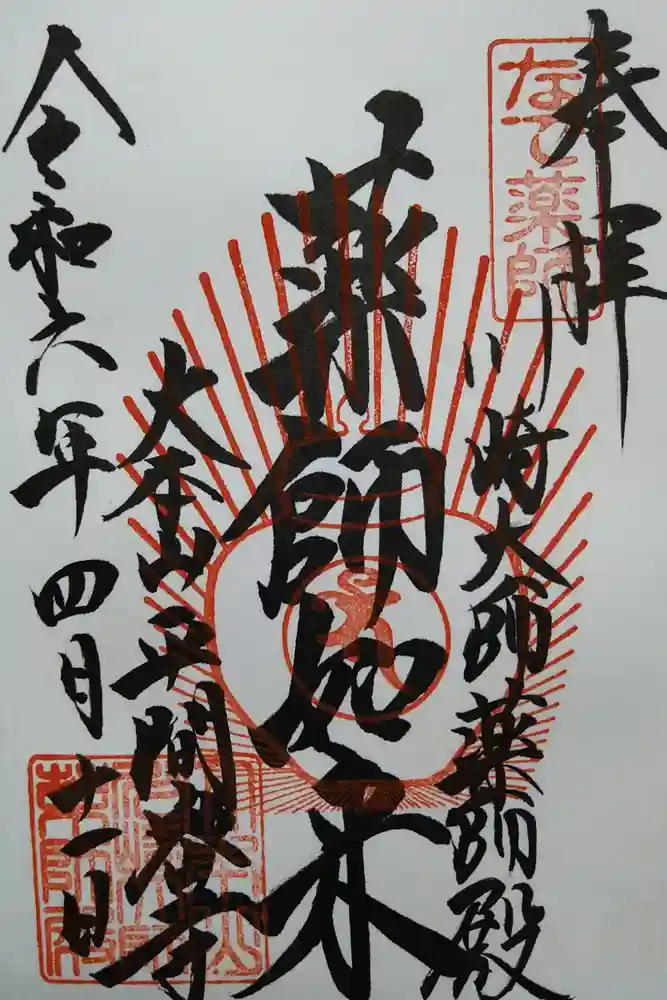 奉拝
なで薬師
川崎大師薬師殿
薬師如来
大本山平間䓁寺
令和六年四月十一日